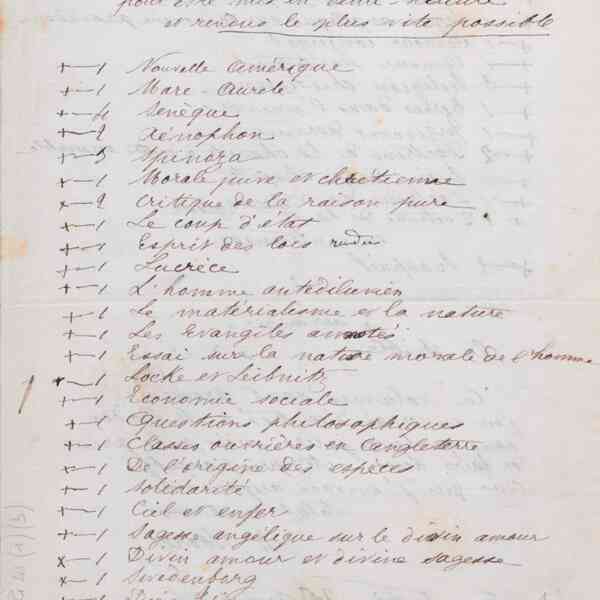 pour être mis en demi-reliure
et rendus le plus vite possible
+ — 1 Nouvelle Amérique
+ — 1 Marc-Aurèle
+ — 4 Senèque
+ — 2 Xénophon
+ — 3 Spinoza
x — 1 Morale juive et chrétienne
x — 2 Critique de la raison pure
+ — 1 Le coup d'état
+ — 1 Esprit des lois rendu
+ — 1 Lucrèce
+ — 1 L'homme antédiluvien
+ — 1 Le matérialisme et la nature
+ — 1 Les Evangiles annotés
+ — 1 Essai sur la nature morale de l'homme
+ — 1 Locke et Leibnitz
+ — 1 Economie sociale
+ — 1 Questions philosophiques
+ — 1 Classes ouvrières en Angleterre
+ — 1 De l'origine des espèces
+ — 1 Solidarité
+ — 1 Ciel et enfer
+ — 1 Sagesse angélique sur le divin amour
x — 1 Divin amour et divine sagesse
x — 1 Swedenborg